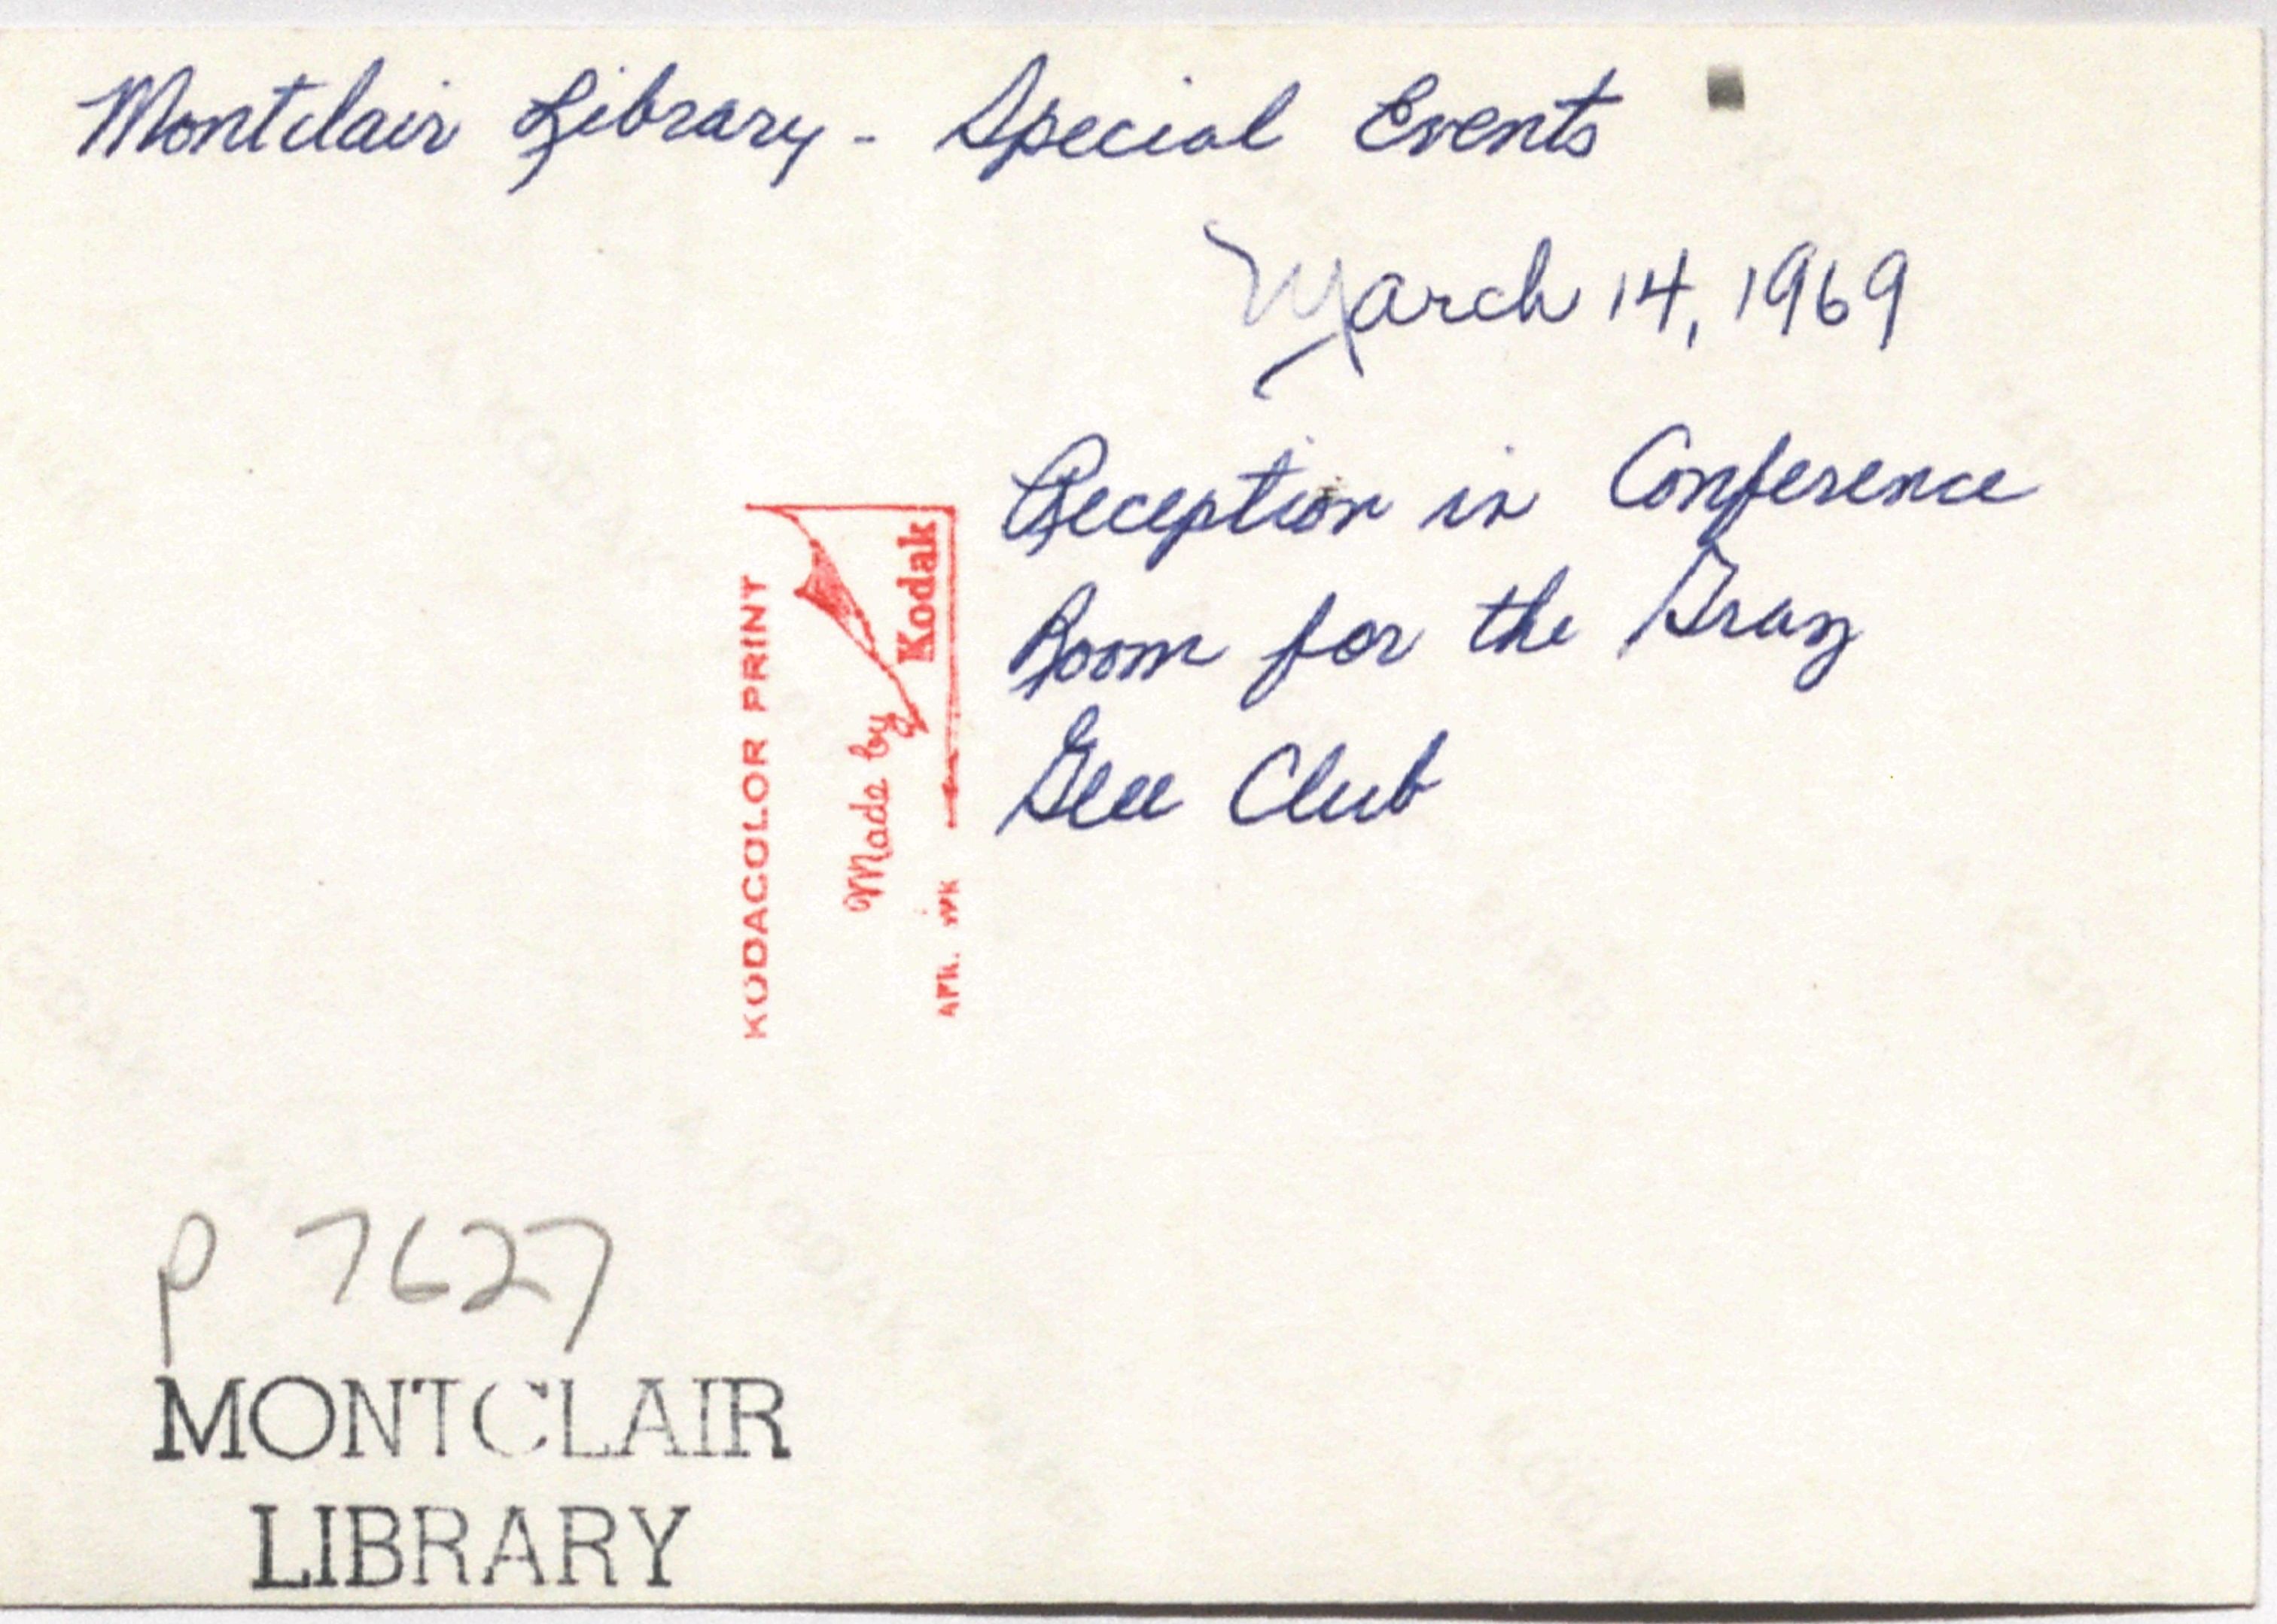 Montclair Library - Special Events
March 14, 1969
Reception in Conference
Room for the Graz
Glee Club
KODACOLOR PRINT
Made by
Kodak
APR. WK
P 7627
MONTCLAIR
LIBRARY